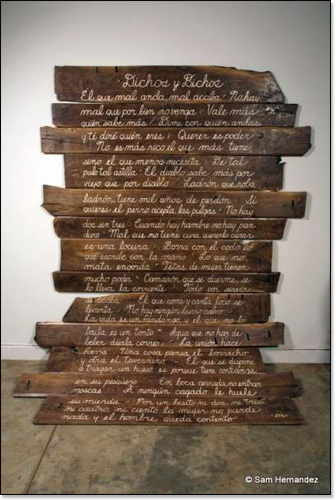 Dichos y Dichos
El que mal anda, mal acaba - No hay
mal que por bien no venga - Vale más
quién sabe más - Dime con quién andas
y té diré quién eres - Querer es poder
No es más rico el que más tiene
sino el que menos necesita - De tal
palo tal astilla - El diablo sabe más por
viejo que por diablo - Ladrón que roba
ladrón tiene mil años de perdón - Si
quieres el perro acepta las pulgas - No hay
dos sin tres - Cuando hay hambre no hay pan
duro - Mal que no tiene cura
es una locura - Borra con el codo lo
que escribe con la mano - Lo que no
mata engorda - Tetas de mujer tienen
mucho poder - Camarón que se duerme, se
lo lleva la corriente - Todo por servir
se acaba - El que come y canta loco se
levanta - No hay ningún burro calvo
La vida es un fandango y el que no lo
baila es un tonto - Agua que no haz de
beber déjala correr - La unión hace
fuerza - Una cosa piensa el borracho
y otra el tavernero - El que se dispone
á tragar un hueso es porque tiene confianza
en su pescuezo - En boca cerrada no entran
moscas - A ningún cagado le huele
su mierda - Por un besito ni dos ni tres
ni cuatro ni ciento la mujer no pierde
nada y el hombre queda contento
© Sam Hernandez